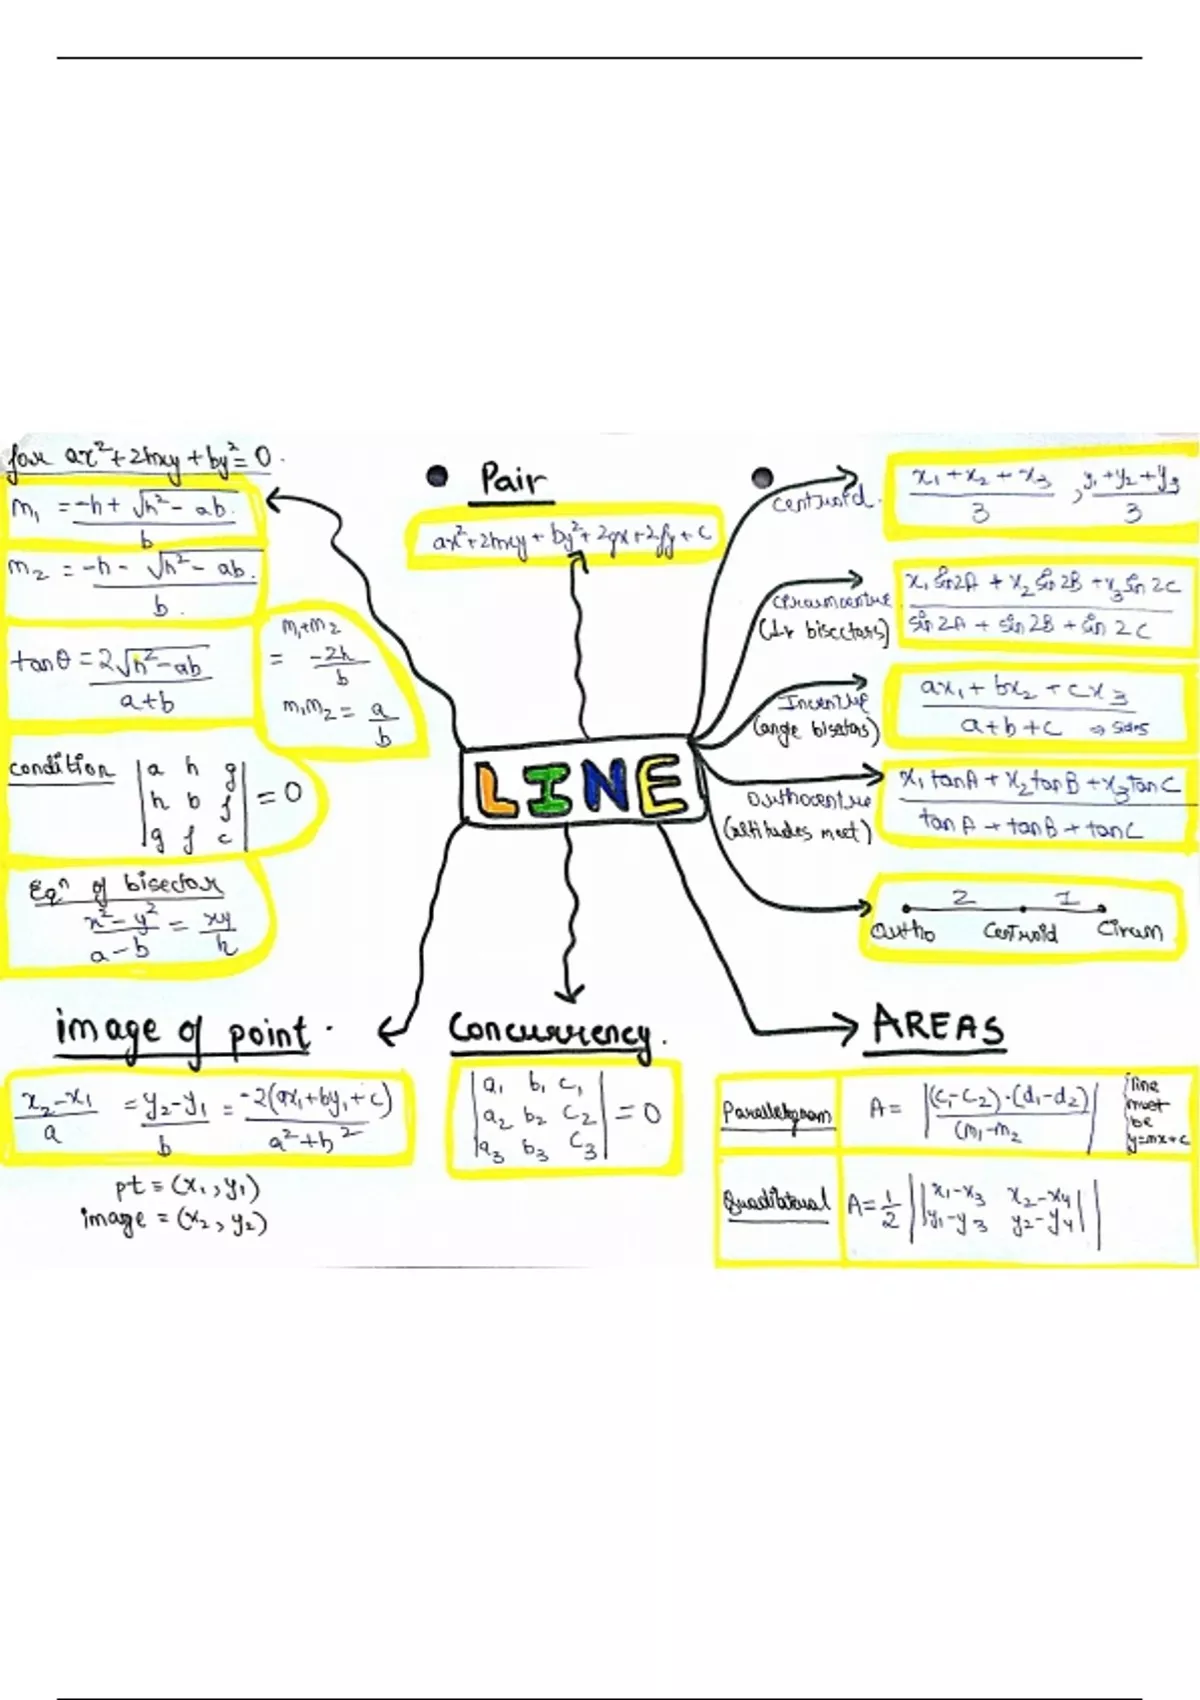 for ax²+2hxy+by²=0.
m₁ = -h+√h²-ab. / b
m₂ = -h-√h²-ab. / b.
tanθ = 2√h²-ab / a+b
m₁+m₂
= -2h / b
m₁m₂ = a / b
condition |a h g|
|h b f| = 0
|g f c|
Eqⁿ of bisector
x²-y² / a-b = xy / h
Pair
ax²+2hxy+by²+2gx+2fy+c
LINE
centroid.
x₁+x₂+x₃ / 3 , y₁+y₂+y₃ / 3
circumcentre
(⊥r bisectors)
x₁sin2A + x₂sin2B + x₃sin2C / sin2A + sin2B + sin2C
Incentre
(angle bisectors)
ax₁+bx₂+cx₃ / a+b+c ⇒ sides
Orthocentre
(altitudes meet)
x₁tanA + x₂tanB + x₃tanC / tanA + tanB + tanC
2 1
Ortho Centroid Circum
image of point.
x₂-x₁ / a = y₂-y₁ / b = -2(ax₁+by₁+c) / a²+b²
pt = (x₁,y₁)
image = (x₂,y₂)
Concurrency.
|a₁ b₁ c₁|
|a₂ b₂ c₂| = 0
|a₃ b₃ c₃|
AREAS
Parallelogram A = |(c₁-c₂)·(d₁-d₂) / (m₁-m₂|
line
must
be
y=mx+c
Quadilateral A = 1/2 ||x₁-x₃ x₂-x₄||
||y₁-y₃ y₂-y₄||